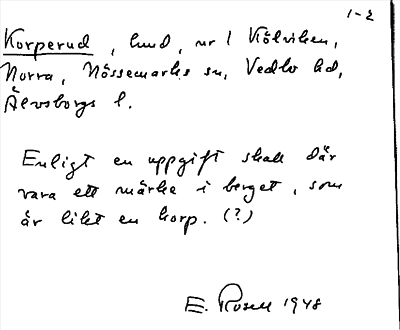 1-2
Korperud, hmd, nr 1 Kölviken,
Norra, Nössemarks sn, Vedbo hd,
Älvsborgs l.
Enligt en uppgift skall där
vara ett märke i berget, som
är likt en korp. (?)
E. Rosell 1948